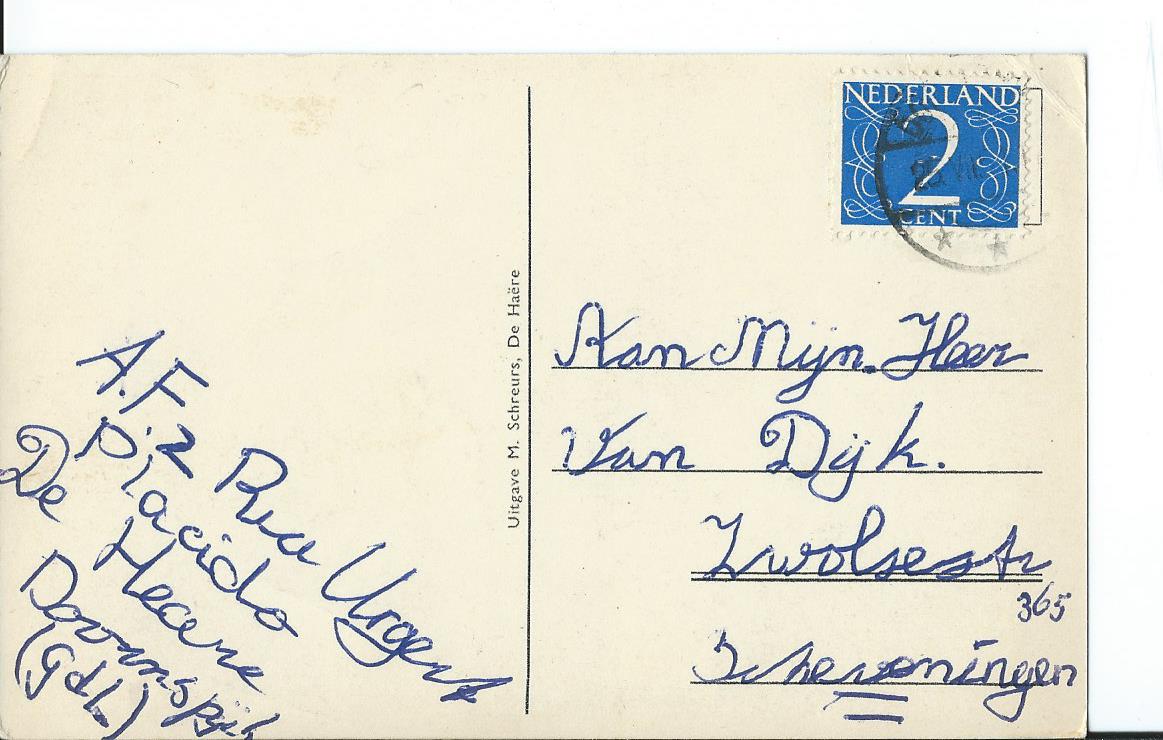 NEDERLAND
2
CENT
Aan Mijn. Heer
Van Dijk.
Zwolsestr
365
Scheveningen
Uitgave M. Schreurs, De Haëre
A.F.z Ria Urgert
Placido
De Heare
Doornspijk
(Gdl.)